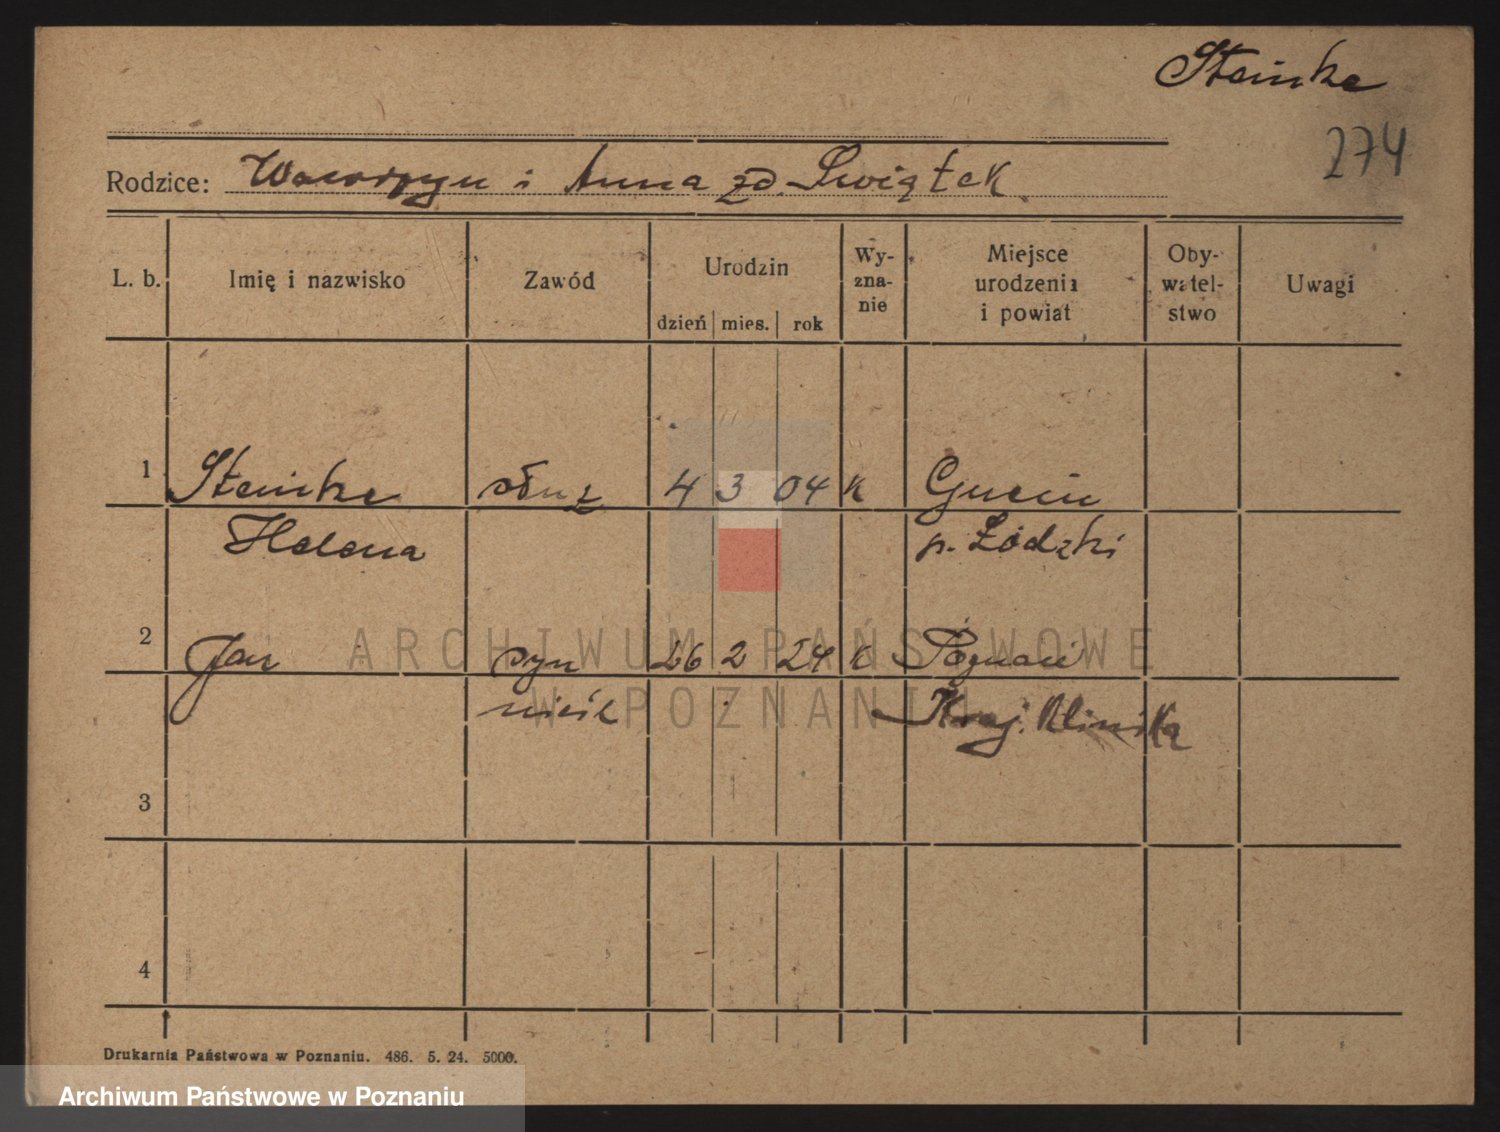 Steinke
274
Rodzice: Wawrzyn i Anna zd. Świątek
L. b. Imię i nazwisko Zawód Urodzin dzień mies. rok Wy-zna-nie Miejsce urodzenia i powiat Oby-watel-stwo Uwagi
1 Steinke służ 4 3 04 K
Helena p. Łódzki
2 Jan syn 26 2 24 K Poznań
nieśl Kraj. Klinika
3
4
Drukarnia Państwowa w Poznaniu. 486. 5. 24. 5000.
ARCHIWUM PAŃSTWOWE
W POZNANIU
Archiwum Państwowe w Poznaniu